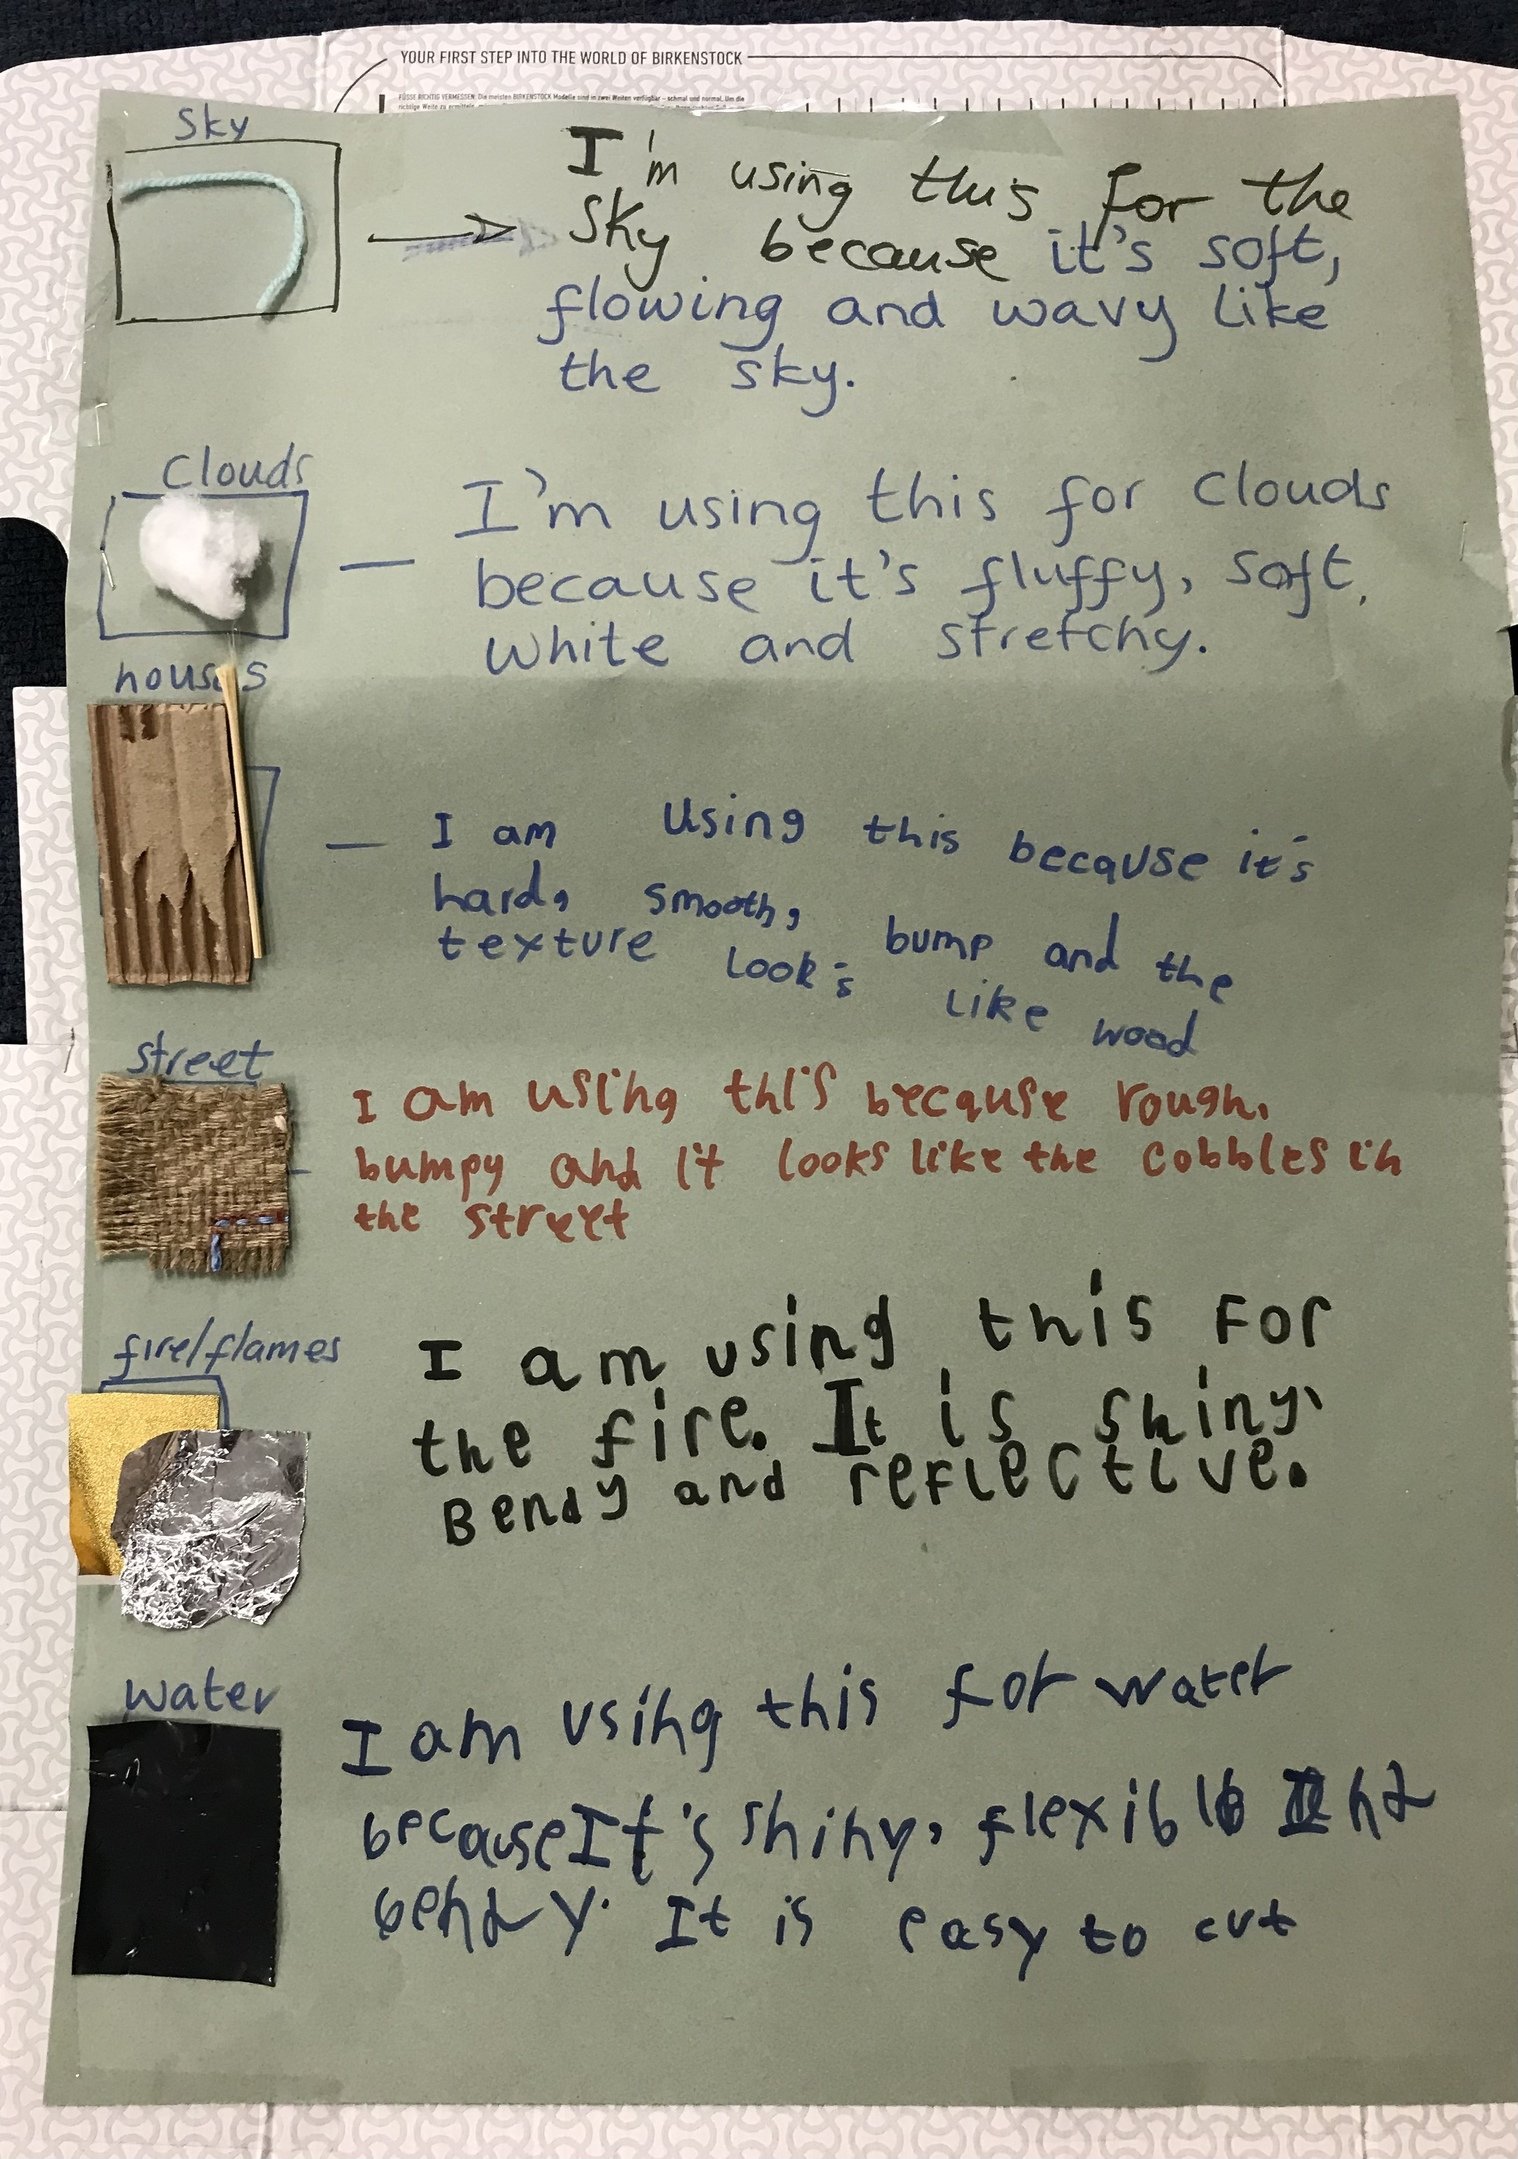 YOUR FIRST STEP INTO THE WORLD OF BIRKENSTOCK
FÜSSE RICHTIG VERMESSEN: Die meisten BIRKENSTOCK Modelle sind in zwei Weiten verfügbar – schmal und normal. Um die
richtige Weite zu ermitteln,
Sky
I'm using this for the
Sky because it's soft,
flowing and wavy like
the sky.
Clouds
I'm using this for Clouds
because it's fluffy, soft,
white and stretchy.
houses
I am using this because it's
hard, smooth, bump and the
texture look's like wood
street
I am using this because rough,
bumpy and it looks like the cobbles in
the street
fire/flames
I am using this For
the fire. It is shiny,
Bendy and reflective.
water
I am using this for water
because It's shiny, flexible and
bendy. It is easy to cut